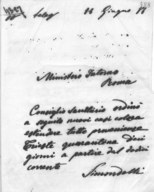 Giugno
Ministro Interno
Roma
Consiglio Sanitario ordinò
a seguito nuovi casi colera
estendere tutte provenienze
Trieste quarantena dieci
giorni a partire dal dodici
corrente